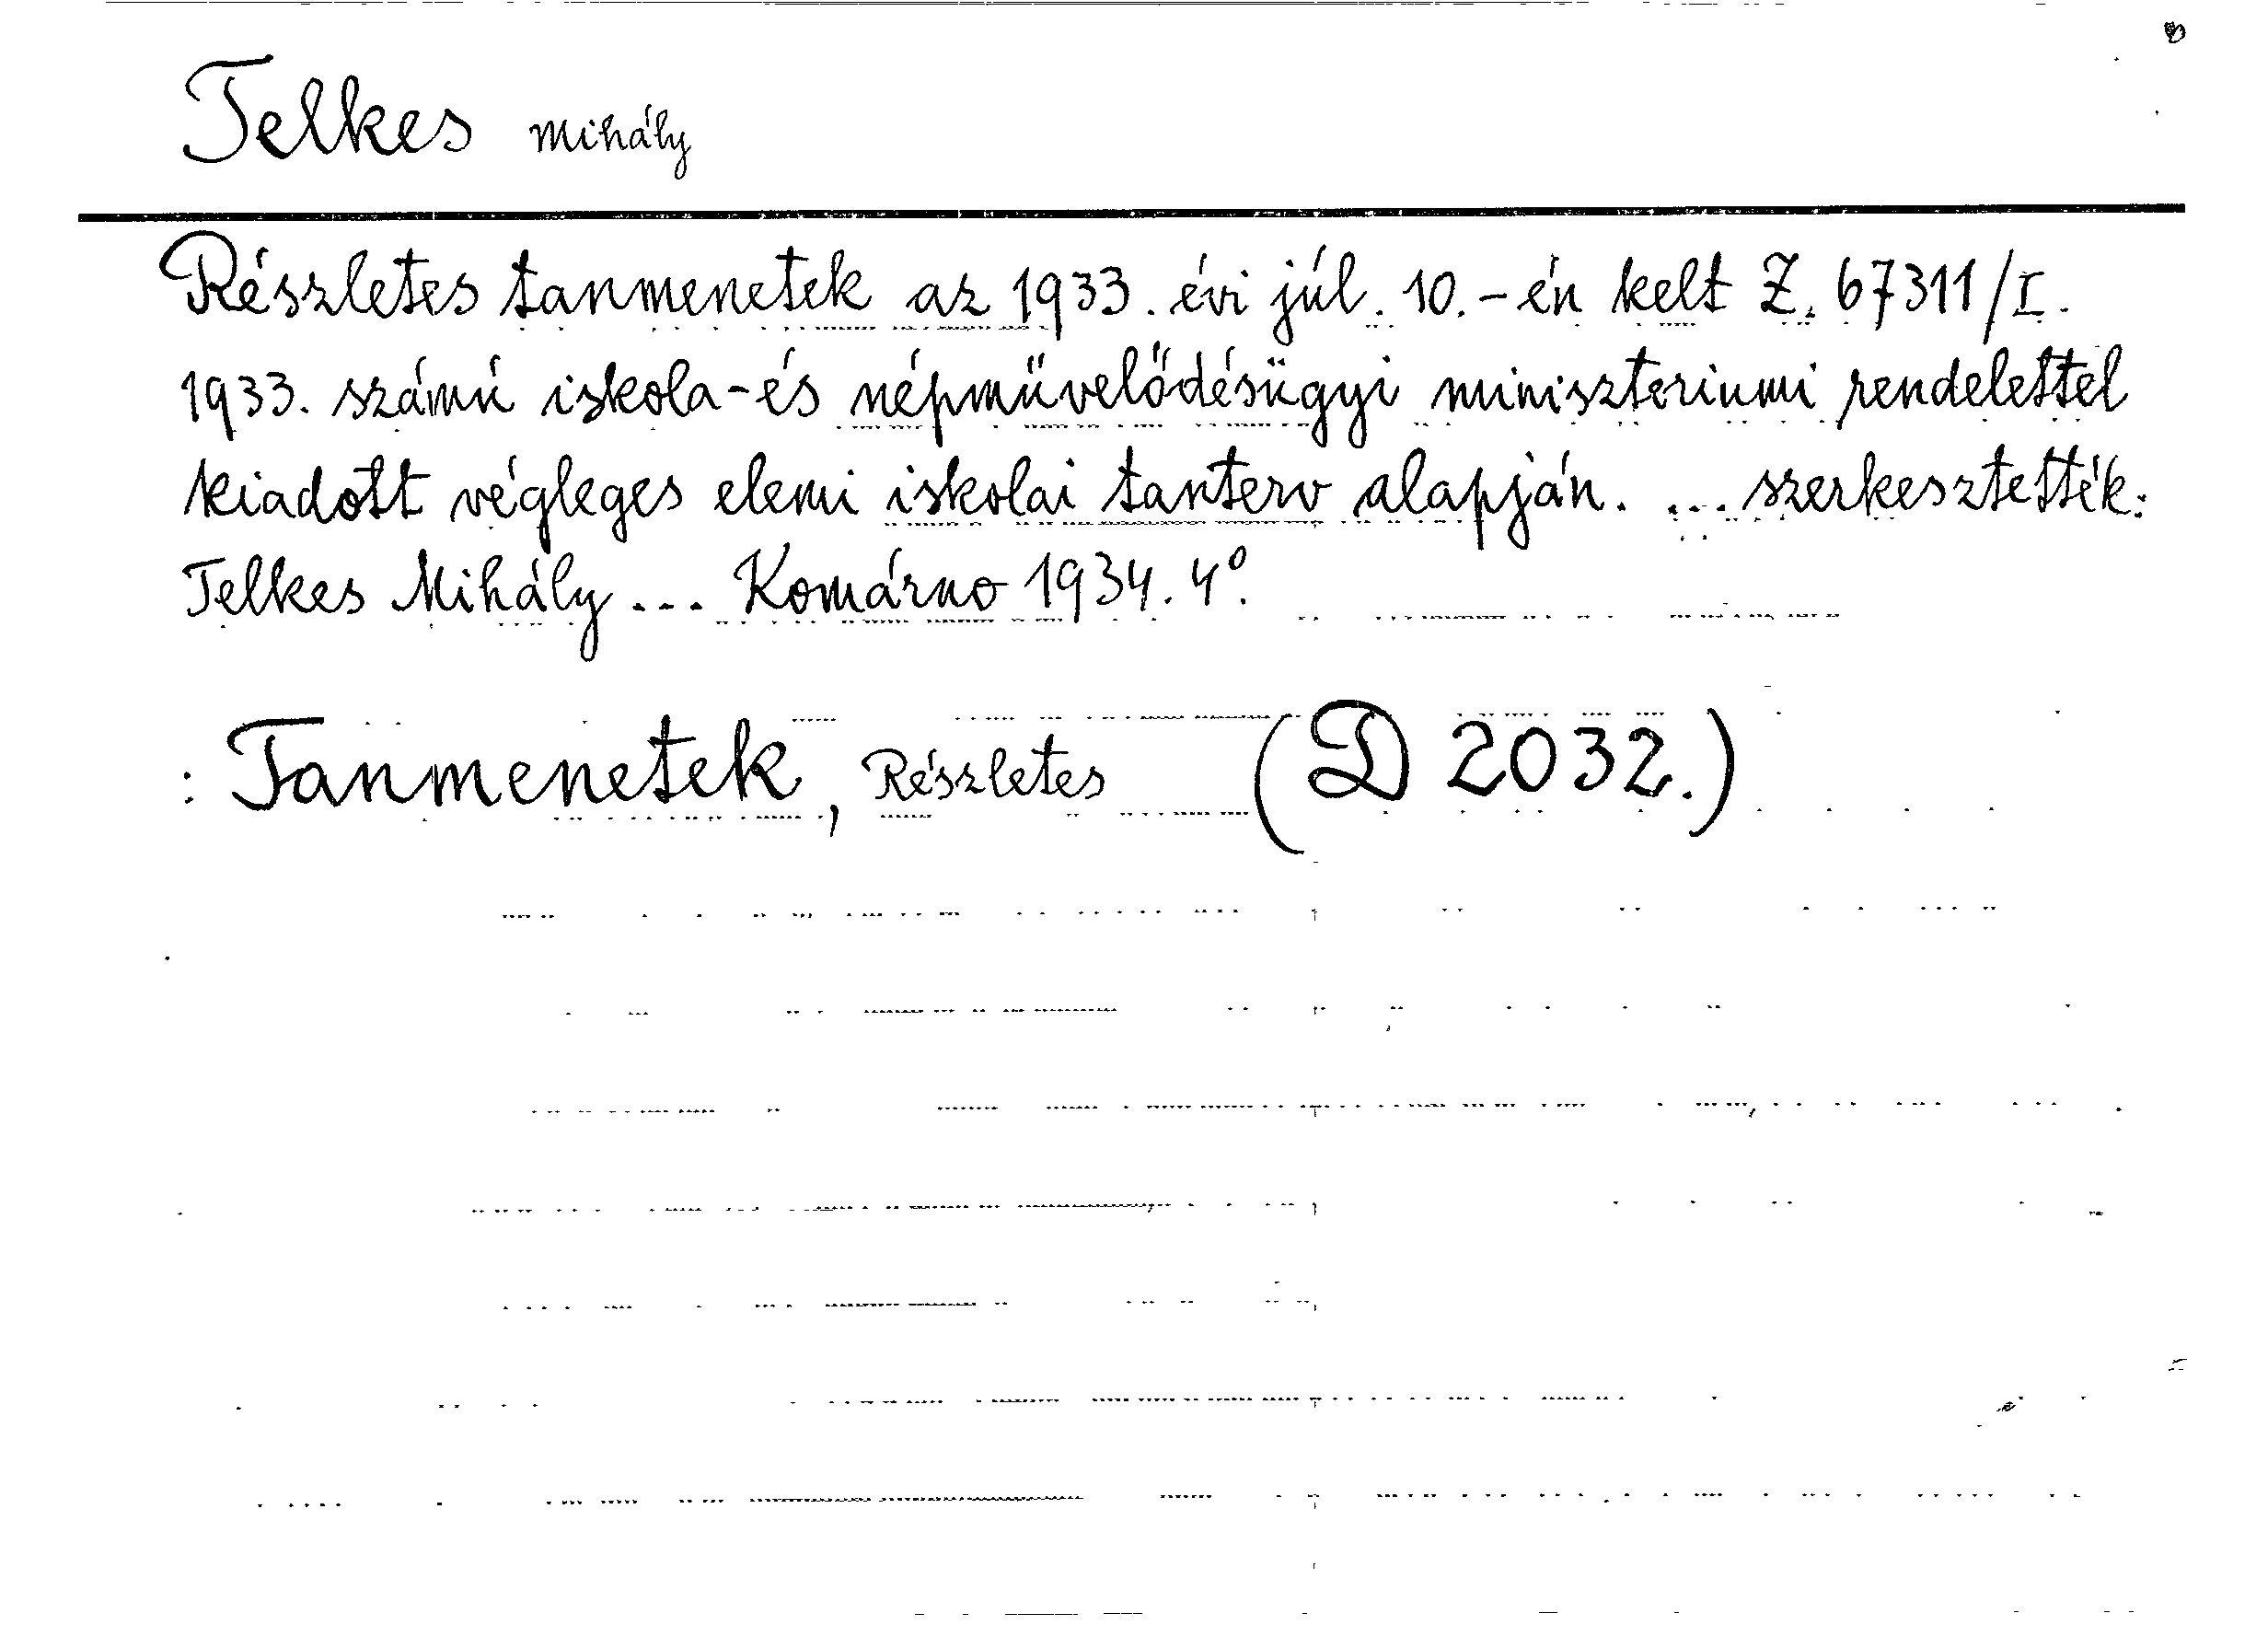 Telkes Mihály
Részletes tanmenetek az 1933. évi júl. 10.-én kelt Z. 67311/I.
1933. számú iskola-és népművelődésügyi miniszteriumi rendelettel
kiadott végleges elemi iskolai tanterv alapján. ... szerkesztették:
Telkes Mihály ... Komárno 1934. 4°.
: Tanmenetek, Részletes (D 2032.)